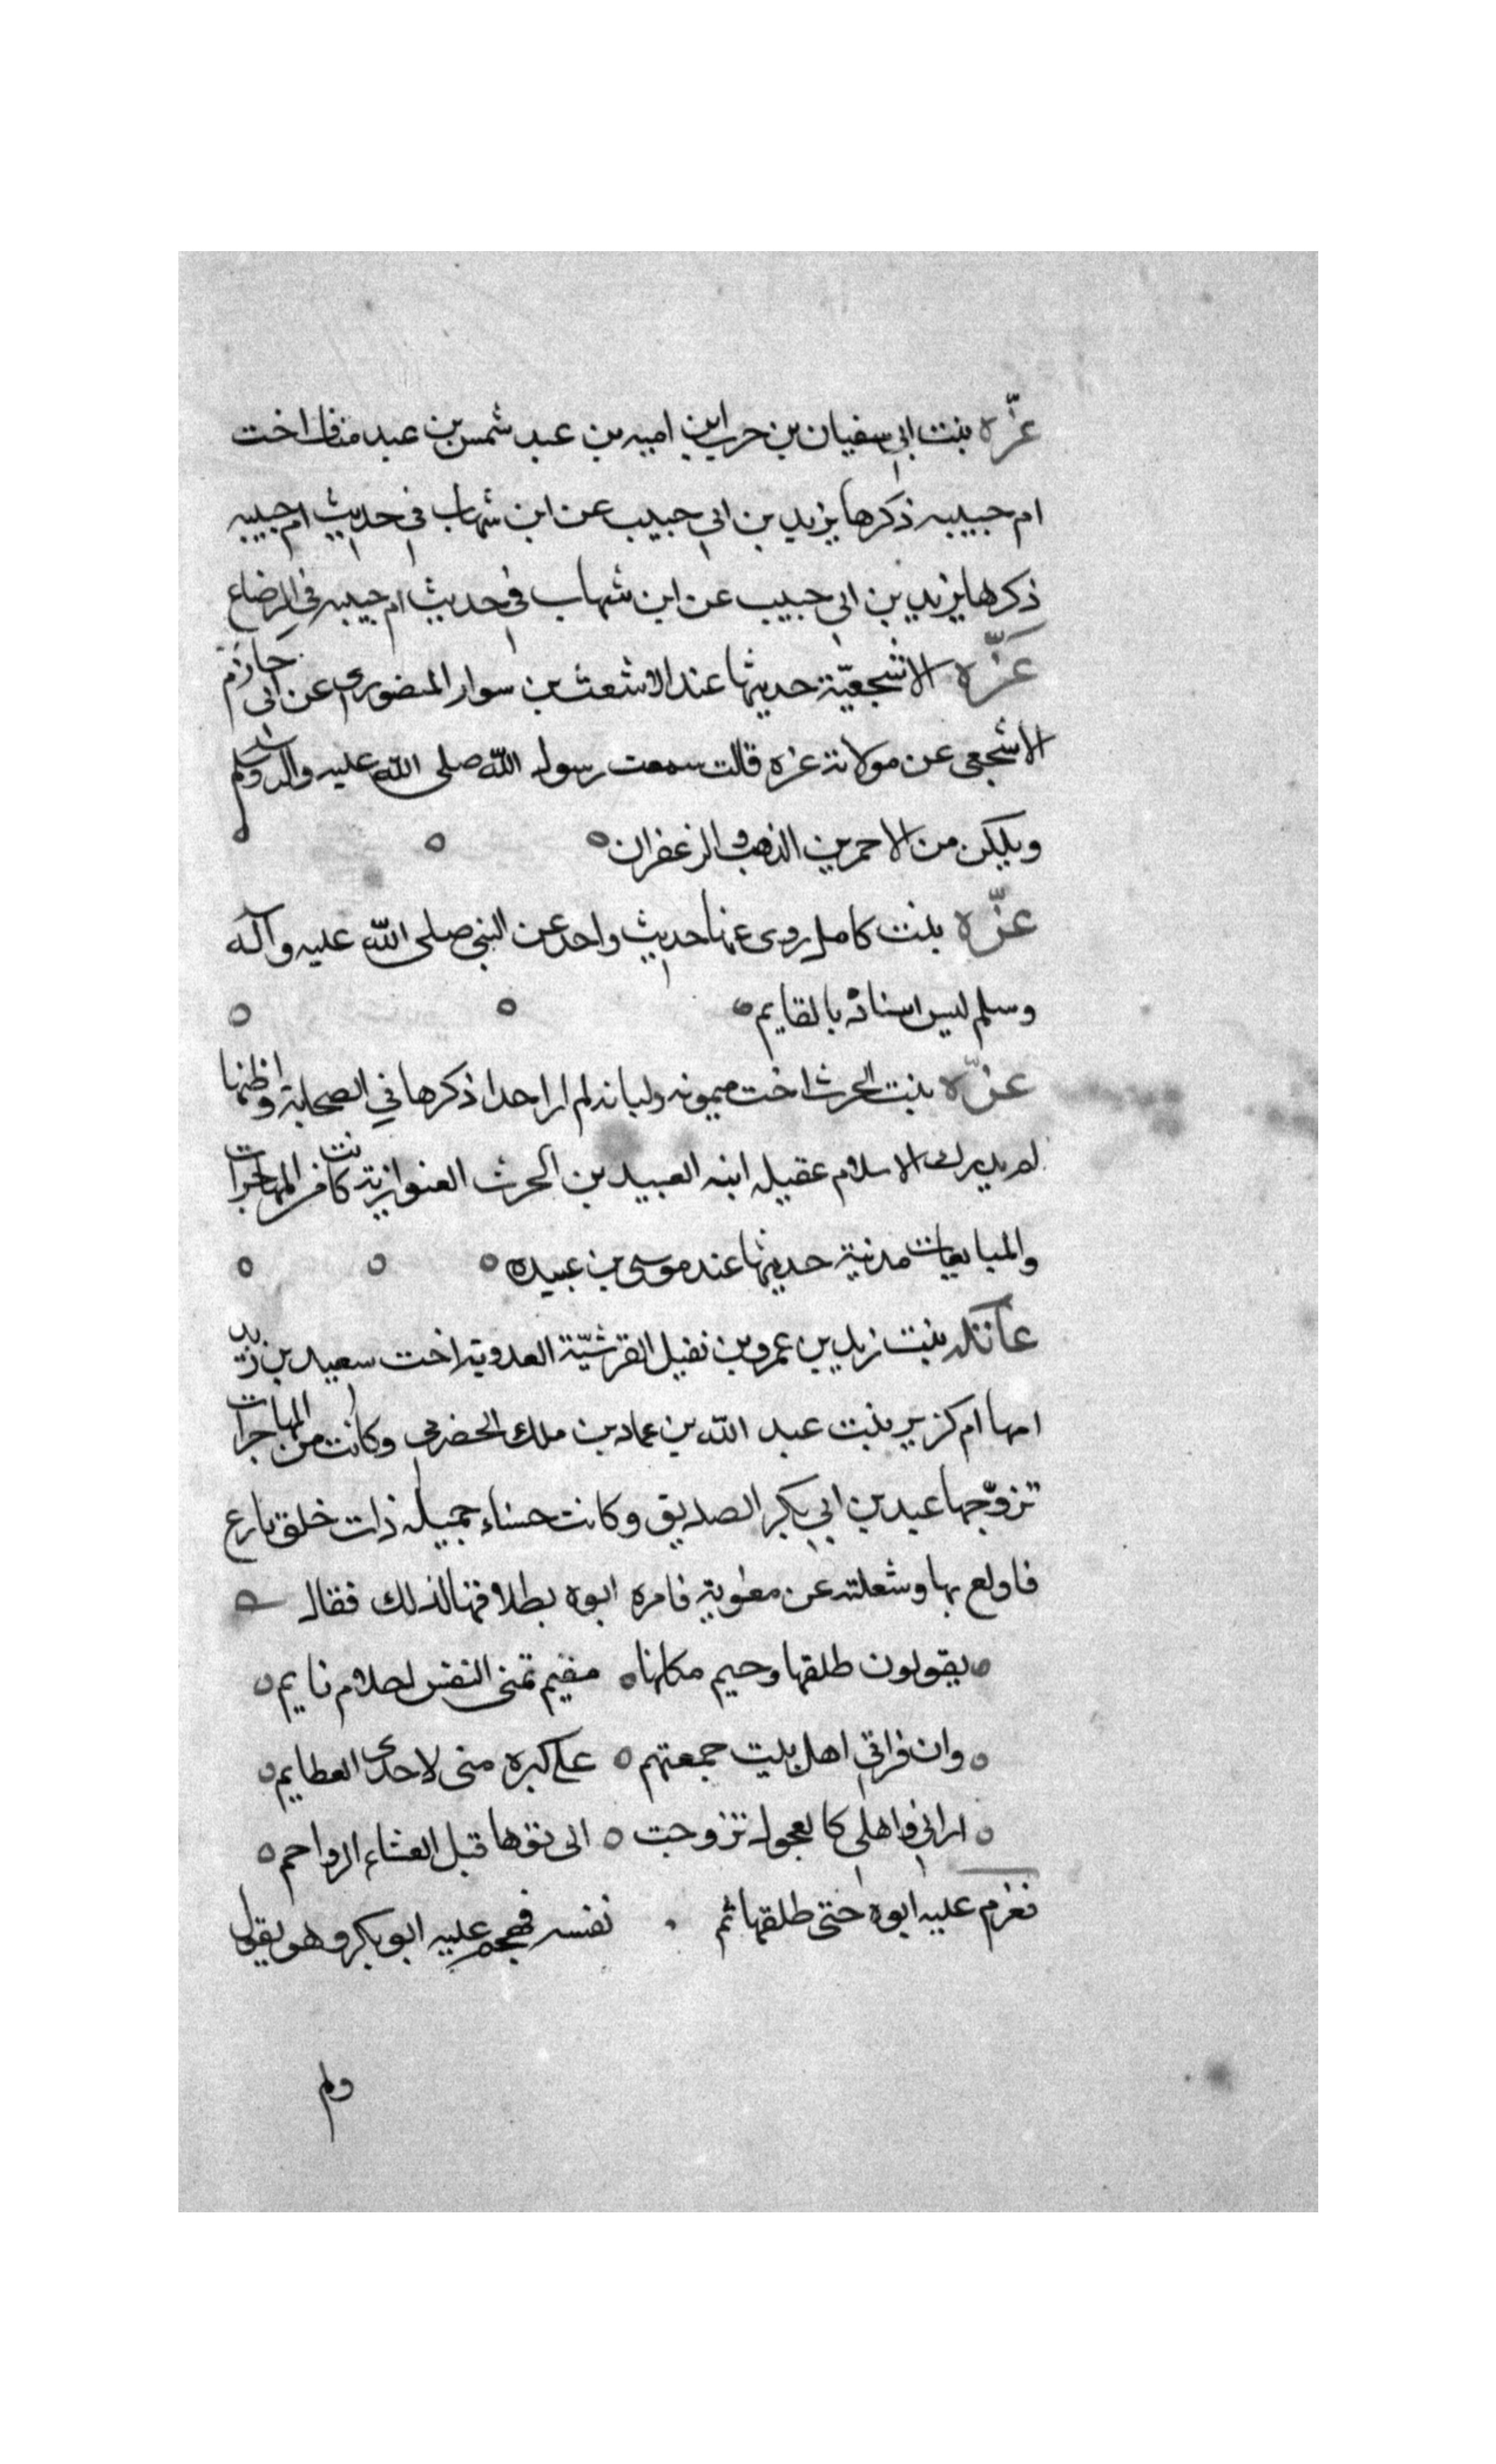 عزّه بنت ابي سفيان بن حرب ابن اميه بن عبد شمس بن عبد مناف اخت
ام حبيبه ذكرها يزيد بن ابي حبيب عن ابن شهاب في حديث ام حبيبه
ذكرها يزيد بن ابي حبيب عن ابن شهاب في حديث ام حبيبه في الرضاع
عزّه الاشجعيّة حديثها عند الاشعث بن سوار المنصوري عن ابي حازم
الاشجعي عن مولاته عزه قالت سمعت رسول الله صلى الله عليه واله وسلم
ويلكن من الاحمرين الذهب والزعفران
عزّه بنت كامل روى عنها حديث واحد عن النبي صلى الله عليه وآله
وسلم ليس اسناده بالقايم
عزّه بنت الحرث اخت ميمونه ولبانه لم ار احدا ذكرها في الصحابة واظنها
لم يدرك الاسلام عقيله ابنه العبيد بن الحرث العنوازية كانت من المهاجرات
والمبايعات مدنية حديثها عند موسى بن عبيده
عاتكه بنت زيد بن عمرو بن نفيل القرشيّة العدوية اخت سعيد بن زيد
امها ام كزير بنت عبد الله بن عماد بن ملك الحضرمي وكانت من المهاجرات
تزوّجها عبد بن ابي بكر الصديق وكانت حسناء جميله ذات خلق بارع
فاولع بها وشغلته عن مغوية فامره ابوه بطلاقها لذلك فقال
يقولون طلقها وحيم مكانها مقيم تمنى النفس احلام نايم
وان فراقي اهل بيت جمعتهم على كبره منى لاحدى العظايم
اراني واهلي كالعجول تزوجت الى نفها قبل العشاء الرواحم
فعزم عليه ابوه حتى طلقها ثم نفسه فهجم عليه ابو بكر وهو يقول
ولم